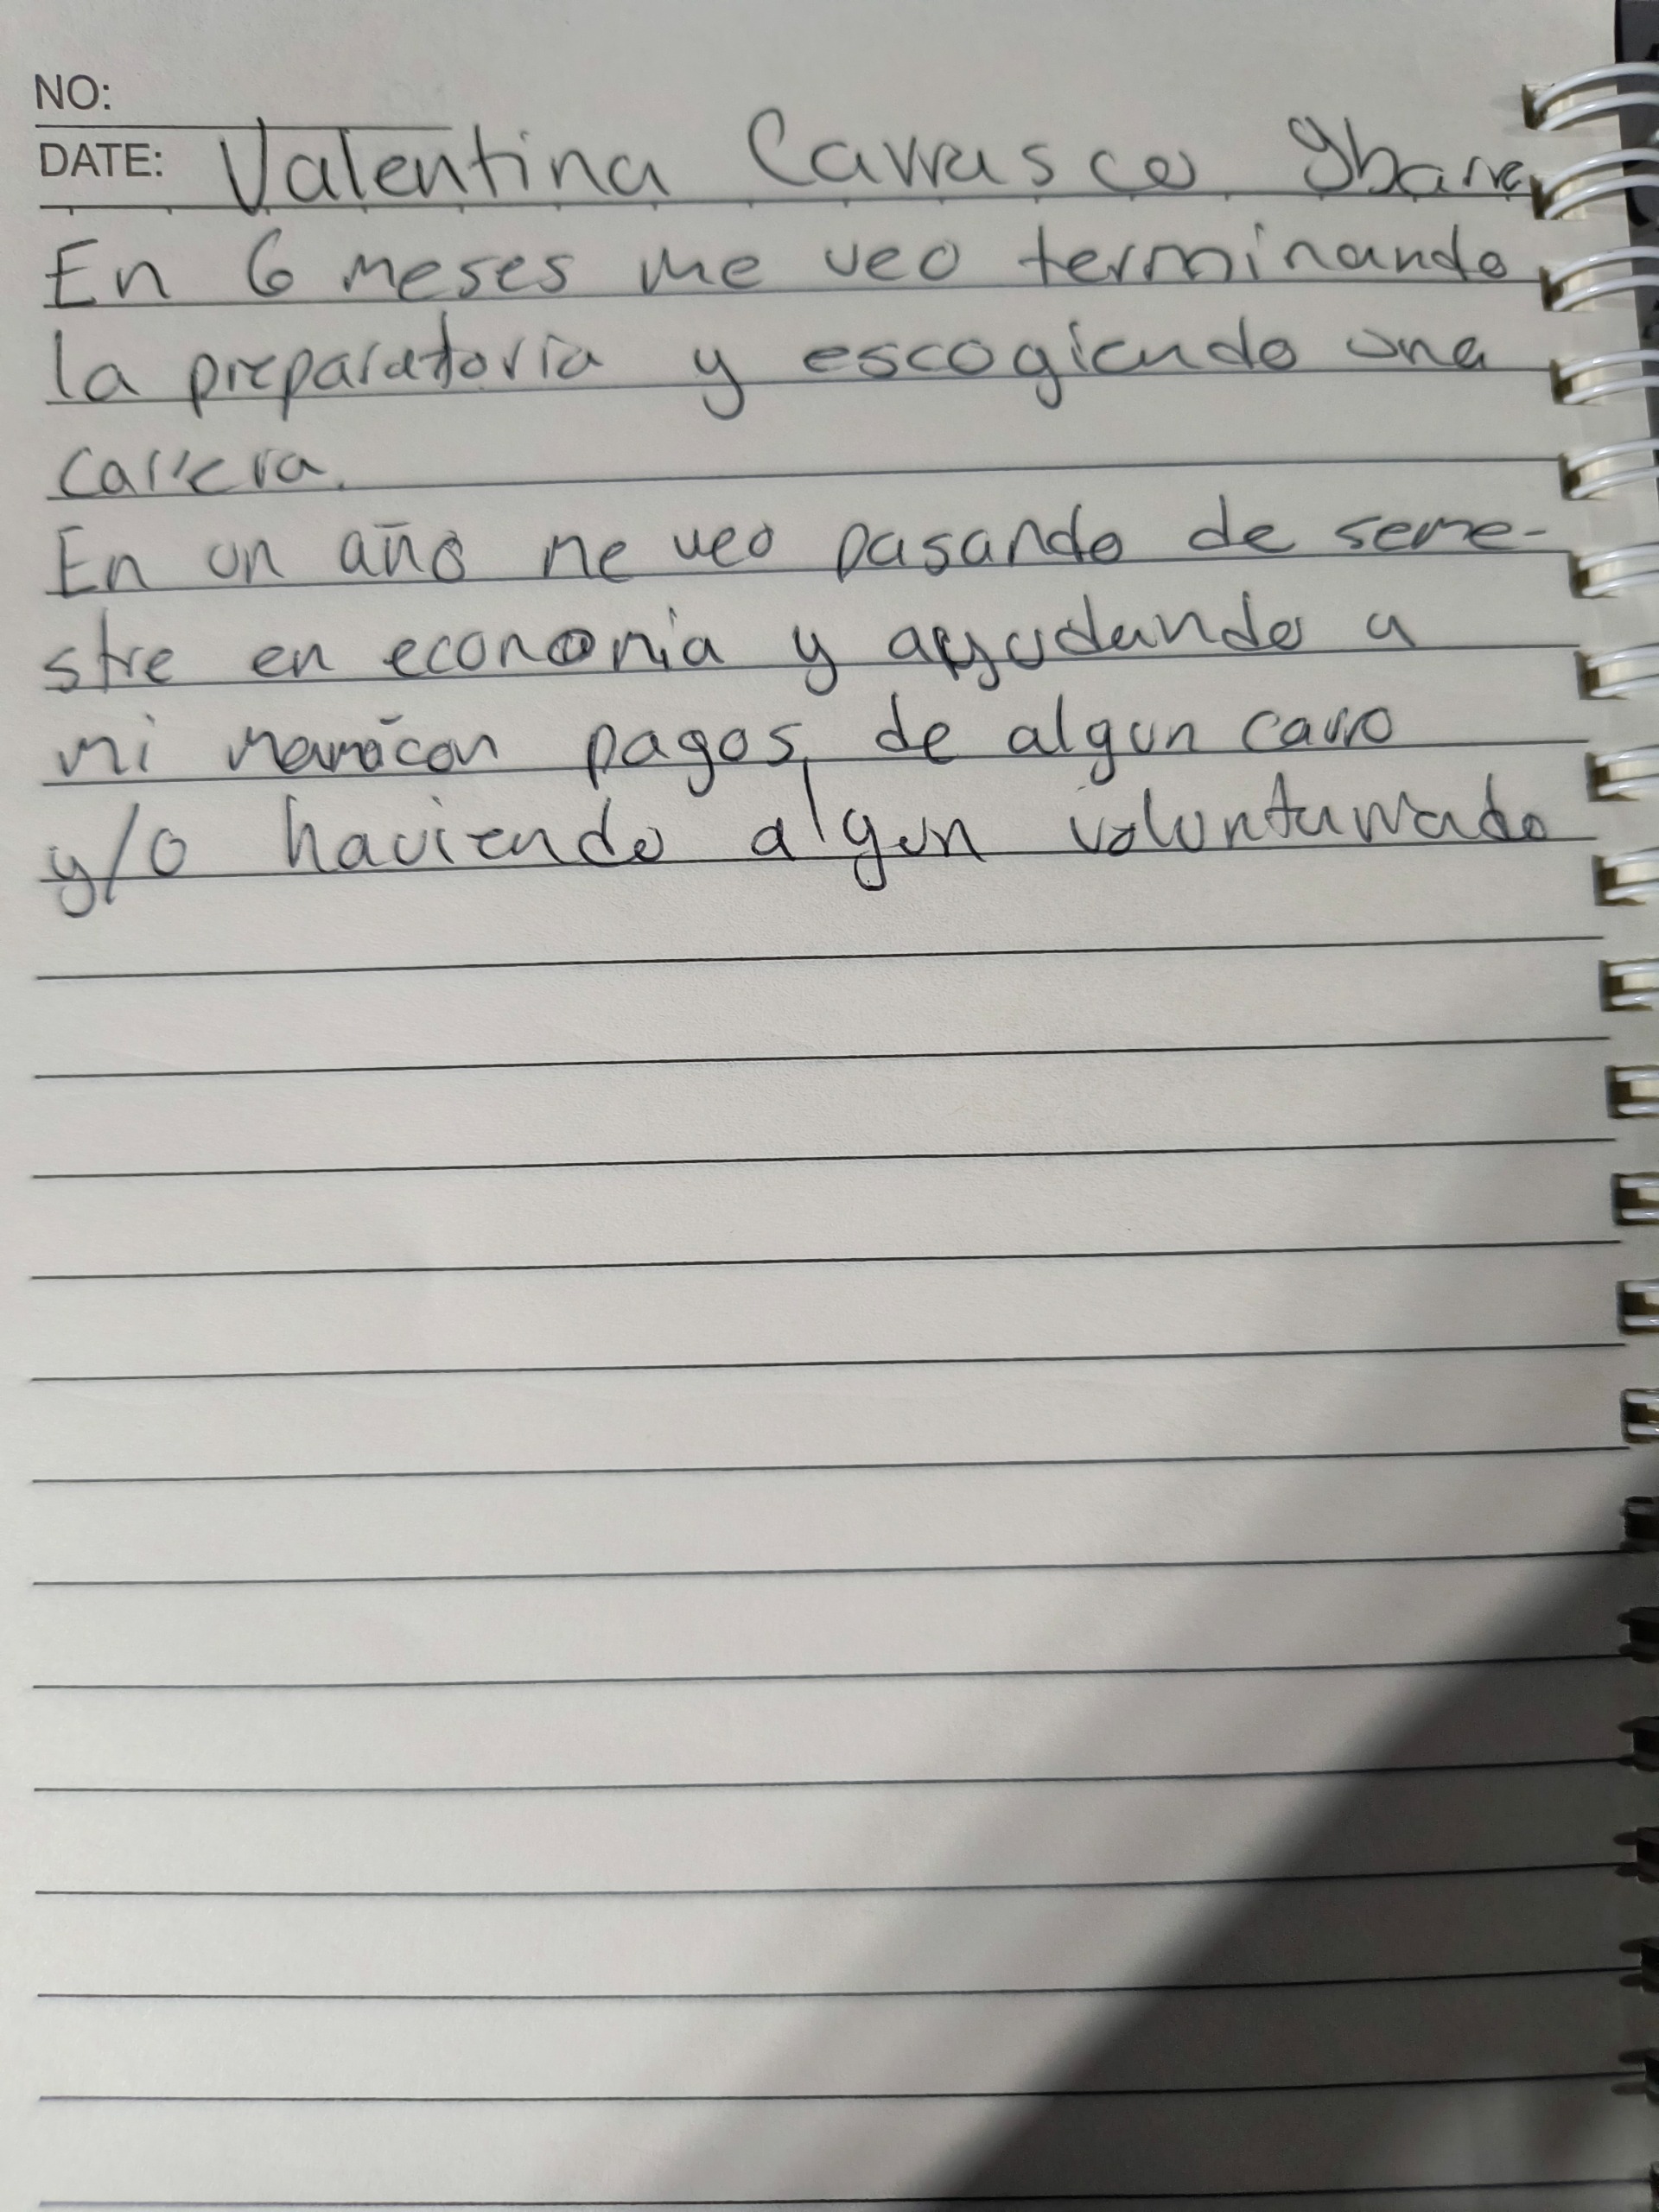 NO:
DATE: Valentina Carrasco Ybarra
En 6 meses me veo terminando
la preparatoria y escogiendo una
carrera.
En un año me veo pasando de seme-
stre en economia y ayudando a
mi mamá con pagos, de algun carro
y/o haciendo algun voluntariado